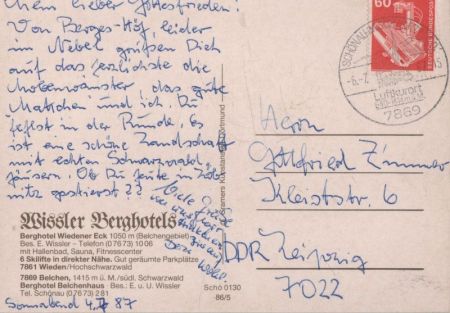 Mein lieber Gottfried!
Von Berges-Höh, leider
im Nebel grüßen Dich
auf das herzlichste die
das gute
und ich. Du
fehlst in der Runde, es
ist eine schöne Landschaft
mit echten Schwarzwald
häusern. Ob Du heute in
gastierst ??
Viele Grüße
Wissler Berghotels
Berghotel Wiedener Eck 1050 m (Belchengebiet)
Bes. E. Wissler – Telefon (0 76 73) 10 06
mit Hallenbad, Sauna, Fitnesscenter
6 Skilifte in direkter Nähe. Gut geräumte Parkplätze
7861 Wieden/Hochschwarzwald
7869 Belchen, 1415 m ü. M./südl. Schwarzwald
Berghotel Belchenhaus · Bes.: E. u. U. Wissler
Tel. Schönau (0 76 73) 2 81
Schö 0130
86/5
Sonnabend 4.7.87
60
DEUTSCHE BUNDESPOST
Luftkurort
7869
Herrn
Gottfried Zimmer
Kleiststr. 6
DDR Leipzig
7022